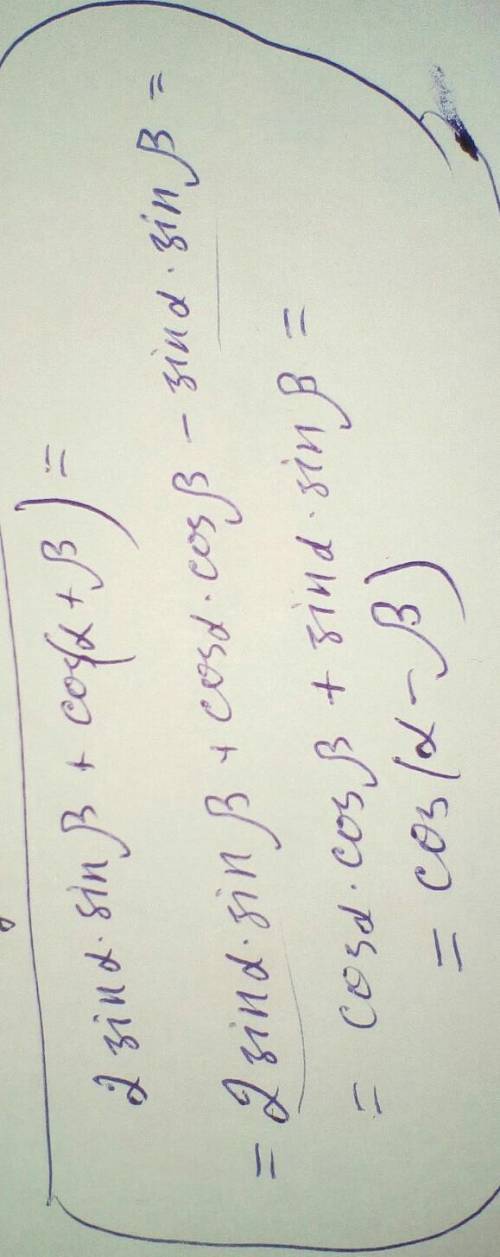 2 sinα · sin β + cos(α + β) =
= 2 sinα · sin β + cosα · cosβ - sinα · sin β =
= cosα · cosβ + sinα · sin β =
= cos(α - β)